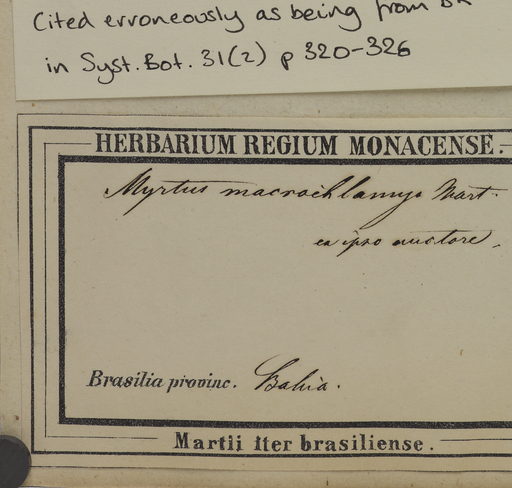 Cited erroneously as being from BR
in Syst. Bot. 31(2) p 320-326
HERBARIUM REGIUM MONACENSE.
Myrtus macrochlamys Mart.
ex ipso auctore,
Brasilia provinc. Bahia.
Martii Iter brasiliense.